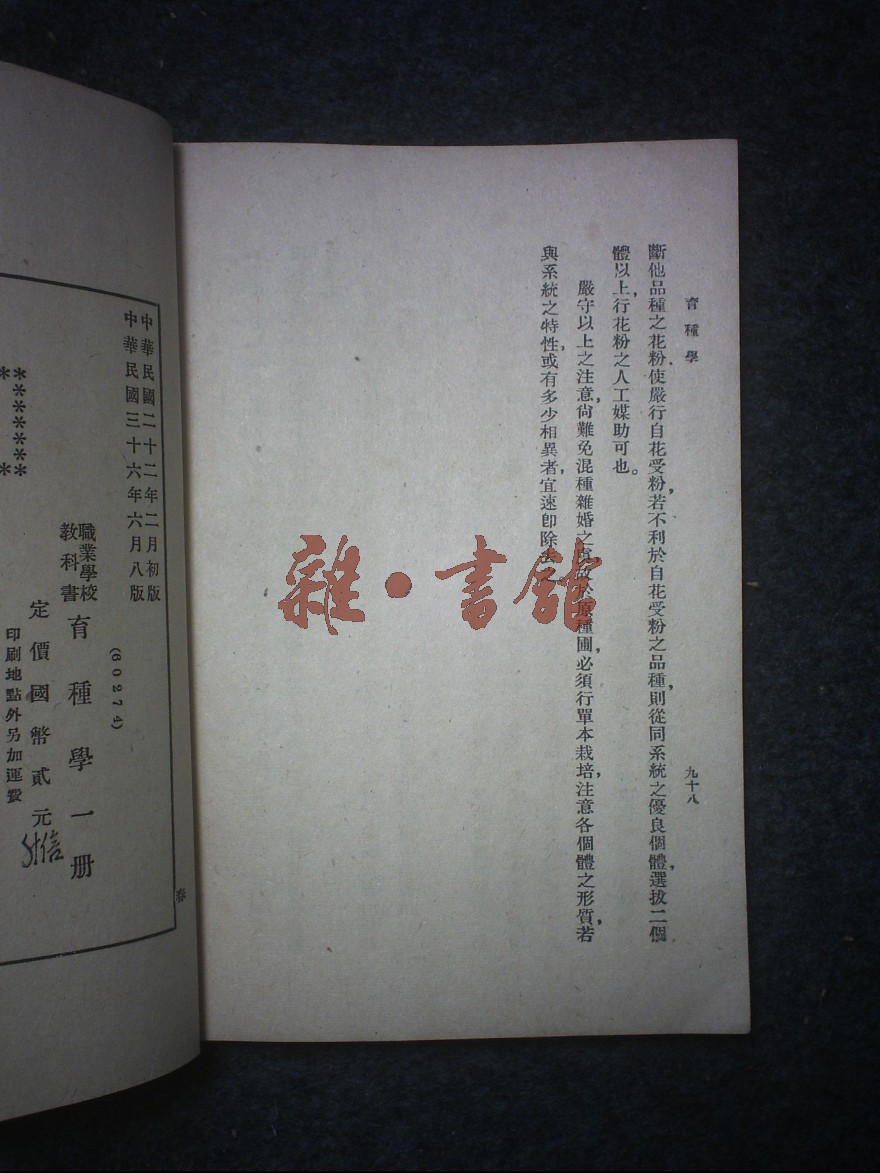 育種學
九十八
斷他品種之花粉使嚴行自花受粉，若不利於自花受粉之品種，則從同系統之優良個體，選拔二個
體以上，行花粉之人工媒助可也。
嚴守以上之注意，尙難免混種雜婚之虞，故於原種圃，必須行單本栽培，注意各個體之形質，若
與系統之特性，或有多少相異者，宜速卽除去
雜·書舘
中華民國二十二年二月初版
中華民國三十六年六月八版
(60274)
職業學校
教科書
育種學一册
定價國幣貳元
印刷地點外另加運費
春